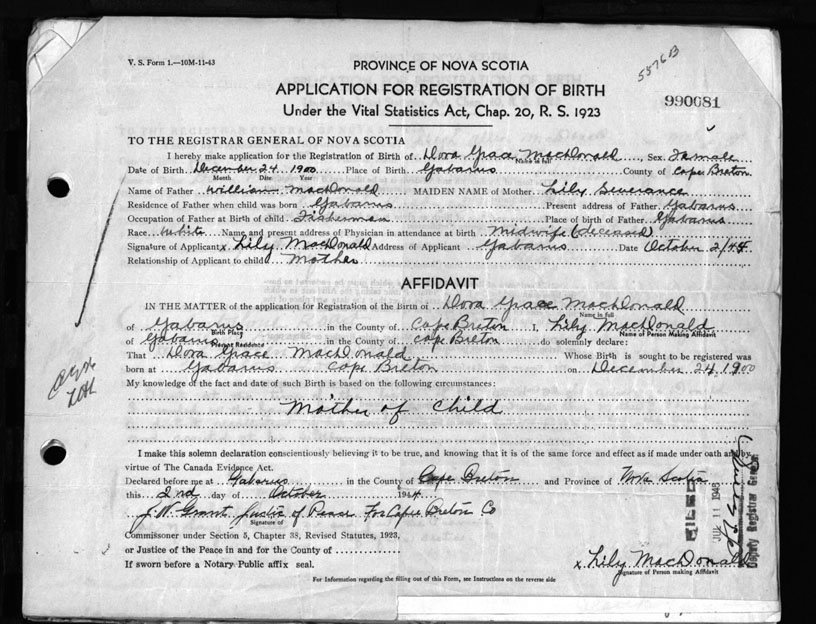 V. S. Form 1.—10M-11-43
5576B
PROVINCE OF NOVA SCOTIA
APPLICATION FOR REGISTRATION OF BIRTH
990681
Under the Vital Statistics Act, Chap. 20, R. S. 1923
TO THE REGISTRAR GENERAL OF NOVA SCOTIA
I hereby make application for the Registration of Birth of Dora Grace MacDonald, Sex. Female
Name in full
Date of Birth December 24 1900 Place of Birth Gabarus County of Cape Breton
Month Date Year
Name of Father William MacDonald MAIDEN NAME of Mother Lily Severance
Residence of Father when child was born Gabarus Present address of Father Gabarus
Occupation of Father at Birth of child Fisherman Place of birth of Father Gabarus
Race white Name and present address of Physician in attendance at birth Midwife (deceased)
Signature of Applicant x Lily MacDonald Address of Applicant Gabarus Date October 2/44
Relationship of Applicant to child Mother
AFFIDAVIT
IN THE MATTER of the application for Registration of the Birth of Dora Grace MacDonald
Name in full
of Gabarus in the County of Cape Breton I, Lily MacDonald
Birth Place Name of Person Making Affidavit
of Gabarus in the County of Cape Breton do solemnly declare:
Present Residence
That Dora Grace MacDonald Whose Birth is sought to be registered was
born at Gabarus Cape Breton on December 24 1900
My knowledge of the fact and date of such Birth is based on the following circumstances:
Mother of Child
I make this solemn declaration conscientiously believing it to be true, and knowing that it is of the same force and effect as if made under oath and by
virtue of The Canada Evidence Act.
Declared before me at Gabarus in the County of Cape Breton and Province of Nova Scotia
this 2nd day of October 1944
J. W. Grant Justice of Peace For Cape Breton Co
Signature of
Commissioner under Section 5, Chapter 38, Revised Statutes, 1923,
or Justice of the Peace in and for the County of
If sworn before a Notary Public affix seal.
x Lily MacDonald
Signature of Person making Affidavit
For Information regarding the filling out of this Form, see Instructions on the reverse side
FILED
JUL 11 1945
Deputy Registrar General